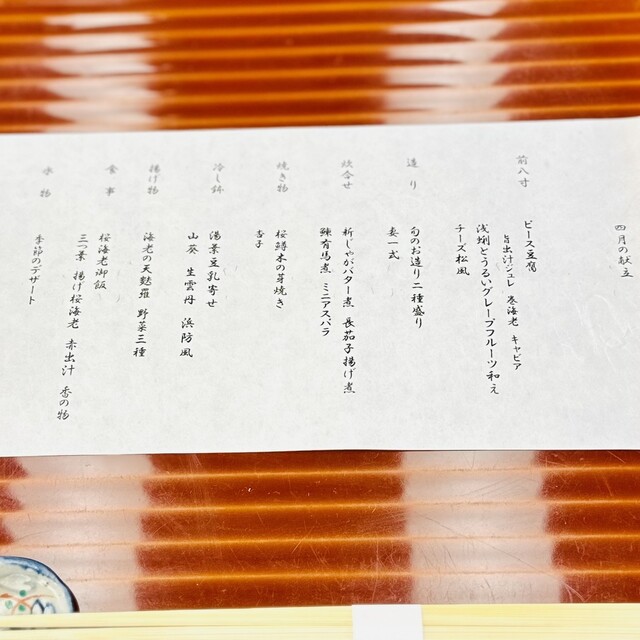 四月の献立
前八寸
ピース豆腐
旨出汁ジュレ 巻海老 キャビア
浅蜊とうるいグレープフルーツ和え
チーズ松風
造り
旬のお造り二種盛り
妻一式
炊合せ
新じゃがバター煮 長茄子揚げ煮
鰊有馬煮 ミニアスパラ
焼き物
桜鱒木の芽焼き
杏子
冷し鉢
湯葉豆乳寄せ
山葵 生雲丹 浜防風
揚げ物
海老の天麩羅 野菜三種
食事
桜海老御飯
三つ葉 揚げ桜海老 赤出汁 香の物
水物
季節のデザート